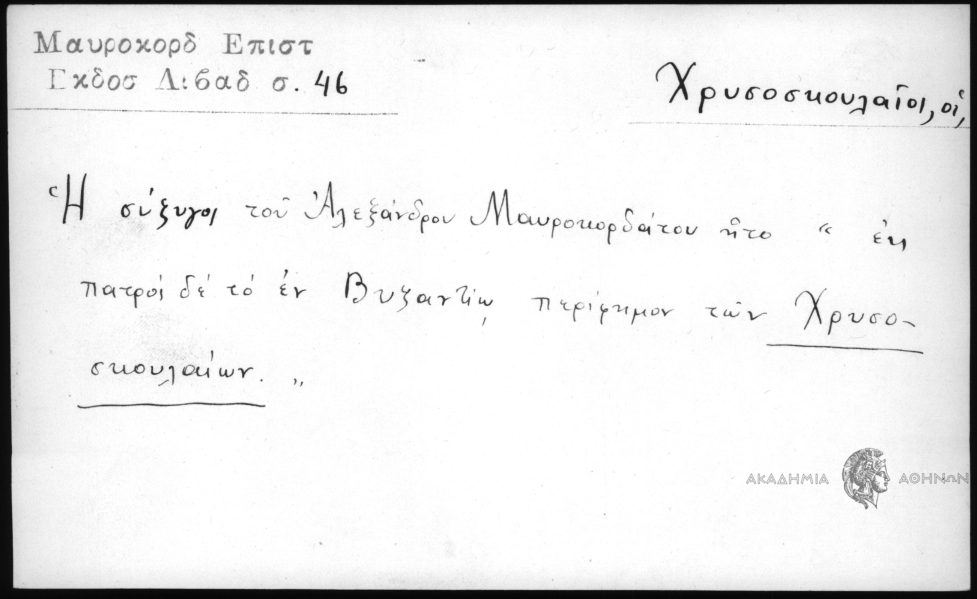 Μαυροκορδ Επιστ
Εκδοσ Λιβαδ σ. 46
Χρυσοσκουλαῖοι, οἱ,
Ἡ σύζυγος τοῦ Ἀλεξάνδρου Μαυροκορδάτου ἦτο " ἐκ
πατρὸς δὲ τὸ ἐν Βυζαντίῳ περίφημον τῶν Χρυσο-
σκουλαίων. "
ΑΚΑΔΗΜΙΑ ΑΘΗΝΩΝ